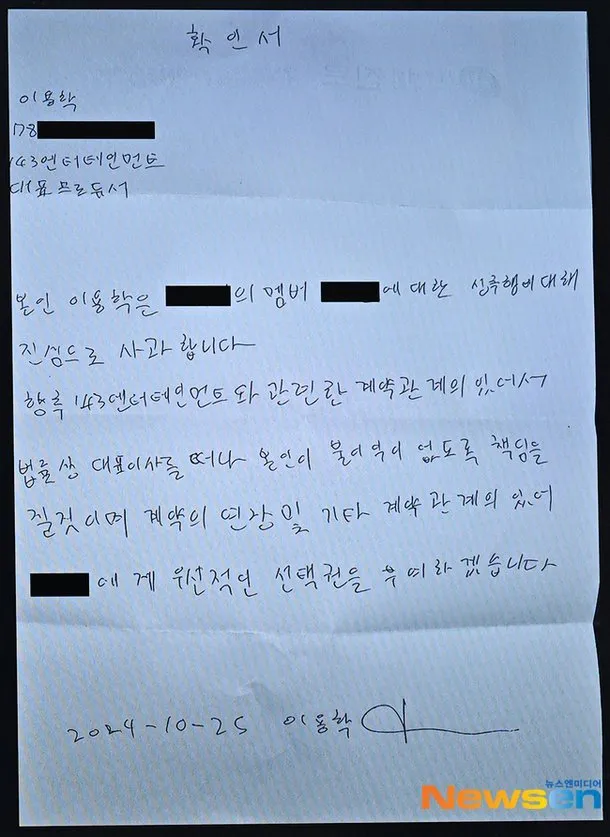 확인서
이용학
78
143엔터테인먼트
대표프로듀서
본인 이용학은 의 멤버 에 대한 성추행에대해
진심으로 사과 합니다
향후 143엔터테인먼트와 관련한 계약관계의 있어서
법률상 대표이사를 떠나 본인이 불이익이 없도록 책임을
질것이며 계약의 연장 및 기타 계약 관계의 있어
에게 우선적인 선택권을 부여하겠습니다
2024-10-25 이용학
뉴스엔미디어
Newsen